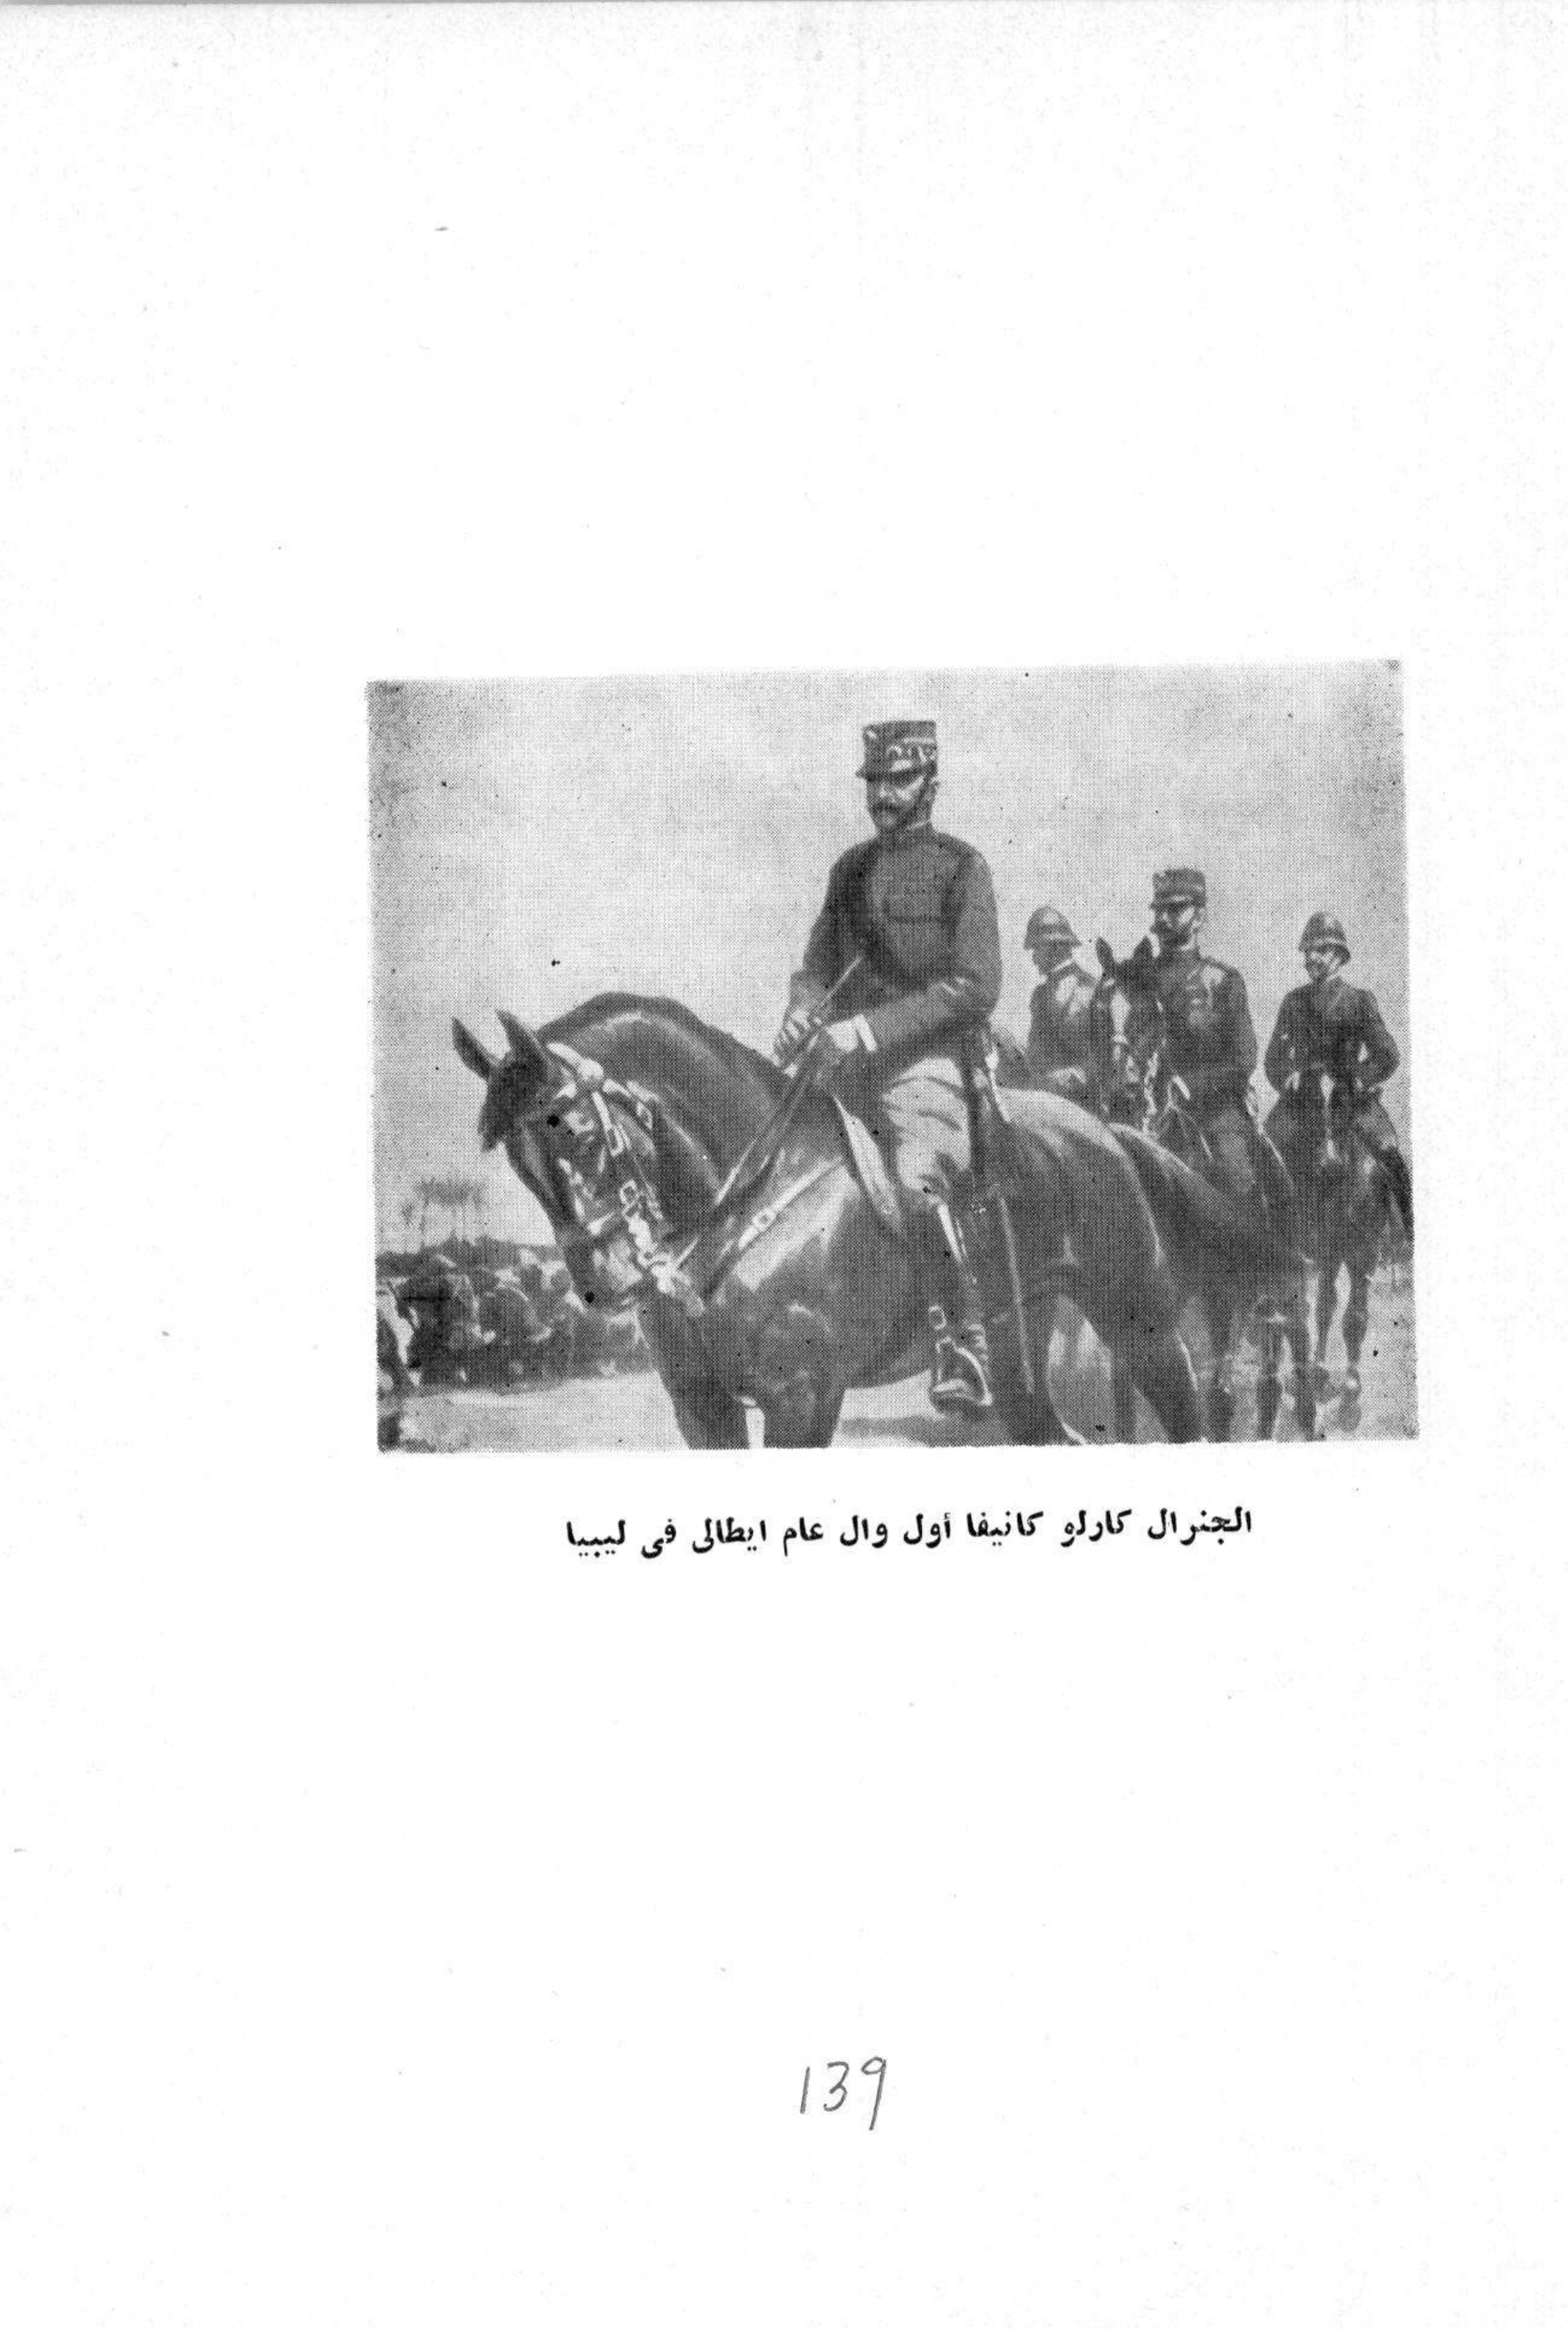 الجنرال كارلو كانيفا أول وال عام ايطالى فى ليبيا
139